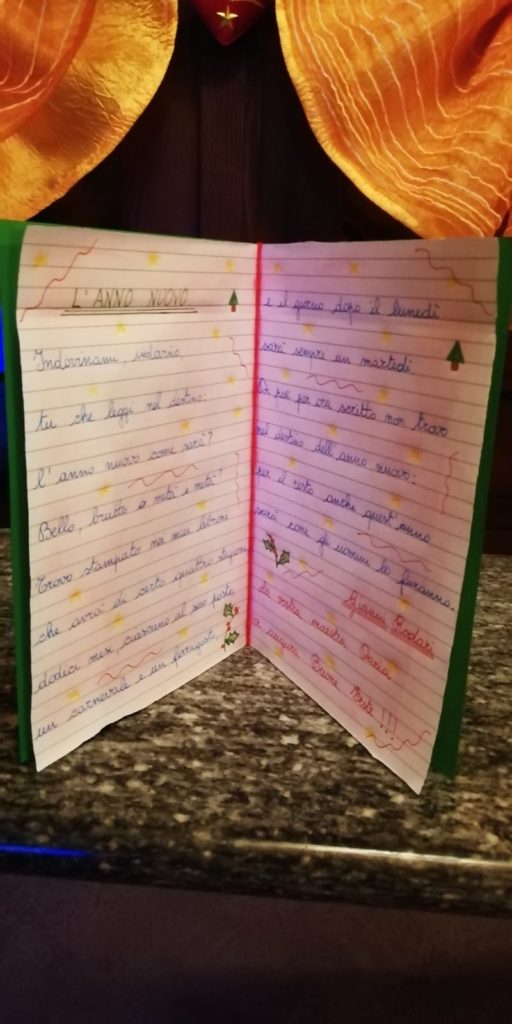 L'ANNO NUOVO
Indovinami, indovino,
tu che leggi nel destino:
l'anno nuovo come sarà?
Bello, brutto o metà e metà?
Trovo stampato nei miei libroni
che avrà di certo quattro stagioni
dodici mesi, ciascuno al suo posto,
un carnevale e un ferragosto,
e il giorno dopo il lunedì
sarà sempre un martedì.
Di più per ora scritto non trovo
nel destino dell'anno nuovo:
per il resto anche quest'anno
sarà come gli uomini lo faranno.
Gianni Rodari
La vostra maestra
augura Buone Feste !!!